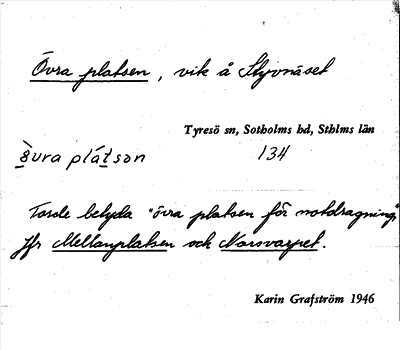 Övra platsen, vik å Styvnäset
Tyresö sn, Sotholms hd, Sthlms län
134
Torde betyda "övra platsen för notdragning".
Jfr Mellanplatsen och Norsvarpet.
Karin Grafström 1946